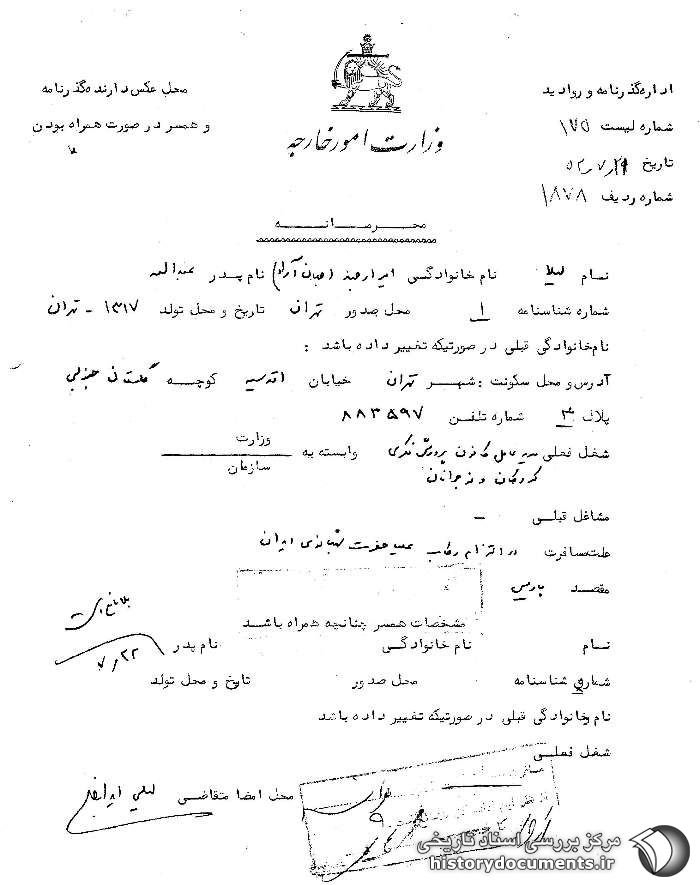 وزارت امور خارجه
اداره گذرنامه و روادید
شماره لیست ۱۷۵
تاریخ
شماره ردیف ۱۸۷۸
محل عکس دارنده گذرنامه
و همسر در صورت همراه بودن
محرمانه
نام لیلا نام خانوادگی نام پدر عبداله
شماره شناسنامه ۱ محل صدور تهران تاریخ و محل تولد ۱۳۱۷ - تهران
نام خانوادگی قبلی در صورتیکه تغییر داده باشد :
آدرس و محل سکونت : شهر تهران خیابان اقدسیه کوچه گلستان جنوبی
پلاک ۳ شماره تلفن ۸۸۳۵۹۷
شغل فعلی مدیر عامل کانون پرورش فکری وابسته به وزارت
کودکان و نوجوانان سازمان
مشاغل قبلی -
علت مسافرت در التزام رکاب علیاحضرت شهبانوی ایران
مقصد پاریس
بلامانع است
مشخصات همسر چنانچه همراه باشد
نام نام خانوادگی نام پدر
۷٫۲۲
شماره شناسنامه محل صدور تاریخ و محل تولد
نام خانوادگی قبلی در صورتیکه تغییر داده باشد
شغل فعلی
محل امضا متقاضی
مرکز بررسی اسناد تاریخی
historydocuments.ir